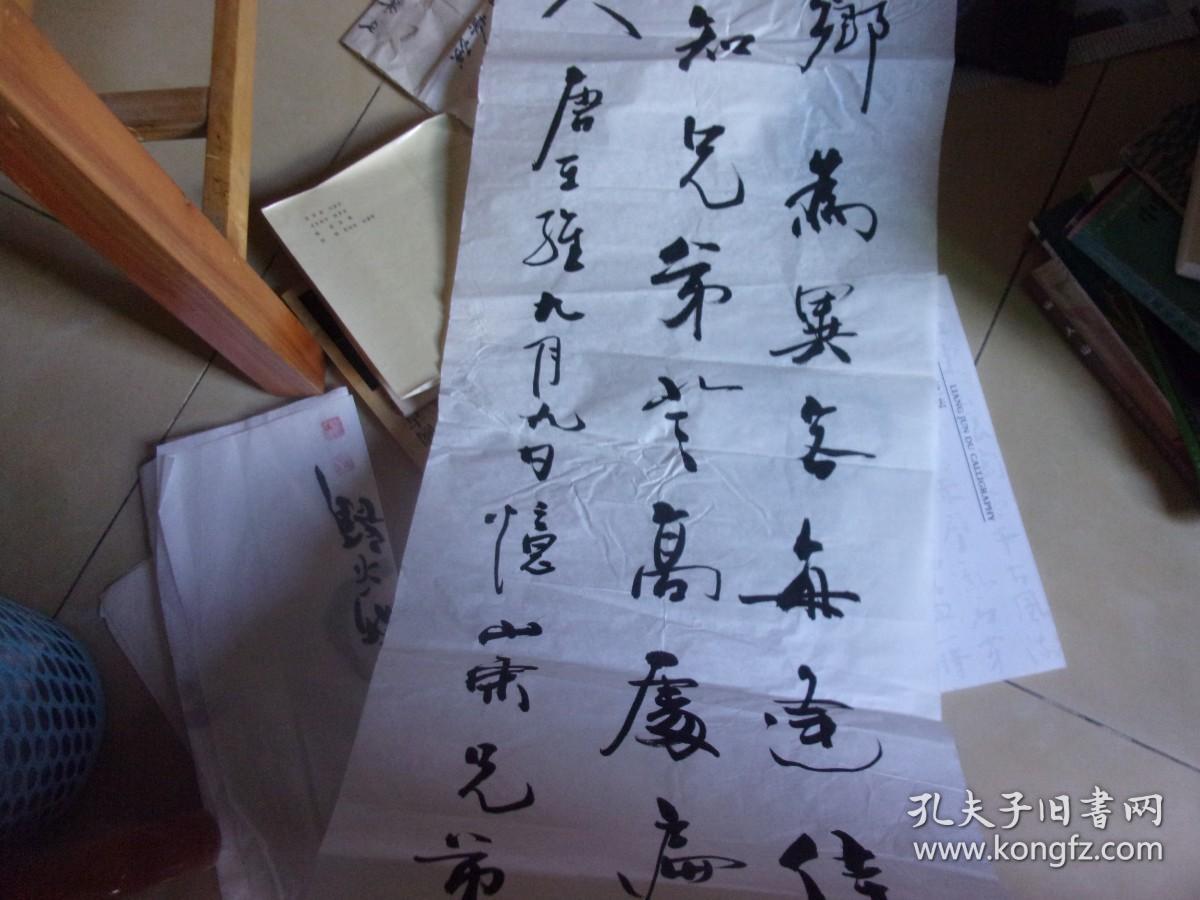 鄉為異客每逢佳
知兄弟登高處遍
人 唐王維九月九日憶山東兄弟
野火燒
LIANG JUN DU CALLIGRAPHY
孔夫子旧书网
www.kongfz.com